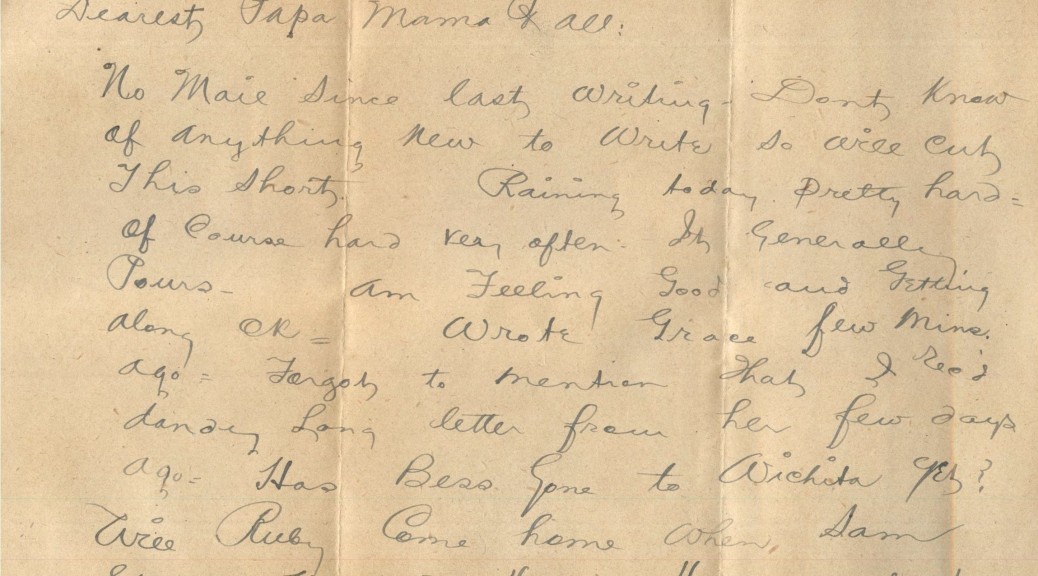 Dearest Papa Mama & all:
No Mail Since last writing - Dont Know
of anything New to Write so will cut
This short. Raining today pretty hard =
of Course hard very often - It Generally
Pours - am Feeling Good and Getting
along OK = Wrote Grace few Mins.
ago = Forgot to mention that I Rec'd
dandy Long letter from her few days
ago = Has Bess Gone to Wichita Yet?
Will Ruby Come home when Sam